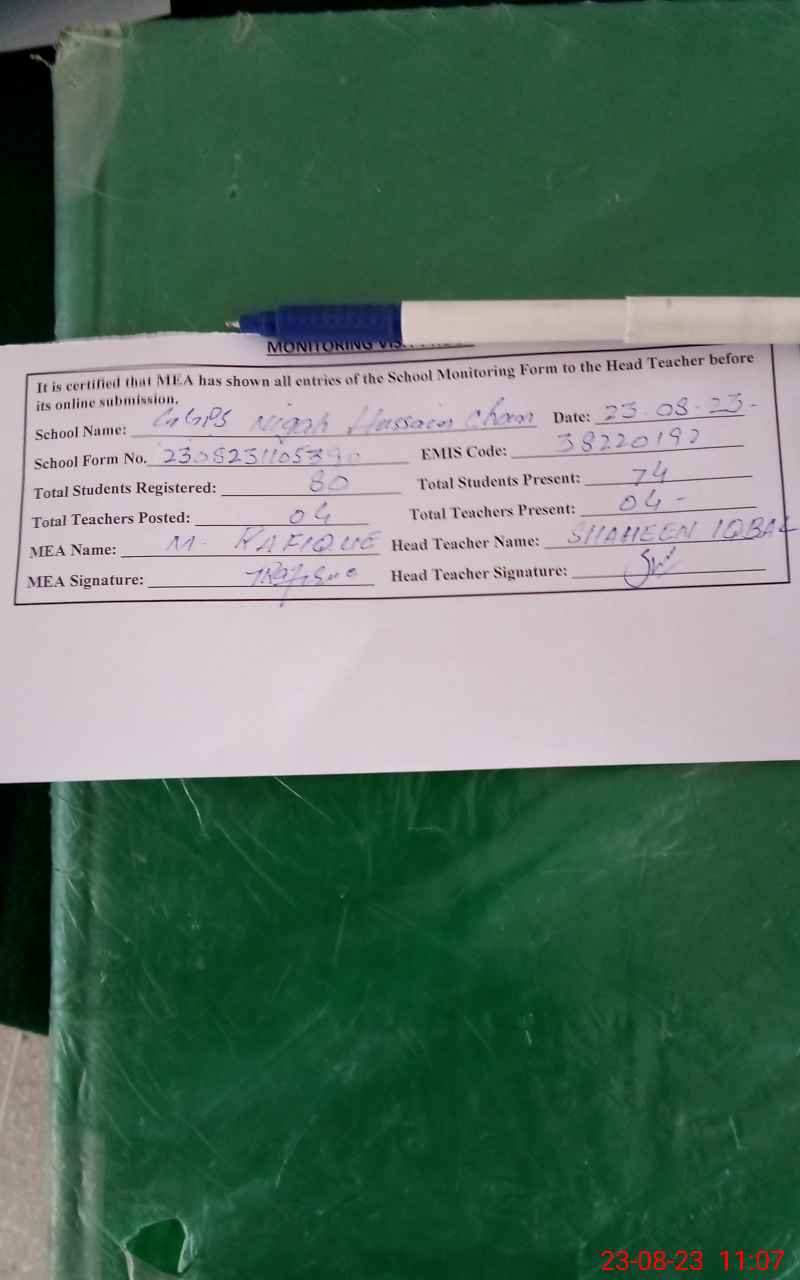 MONITORING
It is certified that MEA has shown all entries of the School Monitoring Form to the Head Teacher before
its online submission.
School Name: GGPS Nigah Hussain Date: 23-08-23-
School Form No. EMIS Code: 38220192
Total Students Registered: 80 Total Students Present: 74
Total Teachers Posted: 04 Total Teachers Present: 04-
MEA Name: M. RAFIQUE Head Teacher Name: SHAHEEN IQBAL
MEA Signature: Head Teacher Signature:
23-08-23 11:07